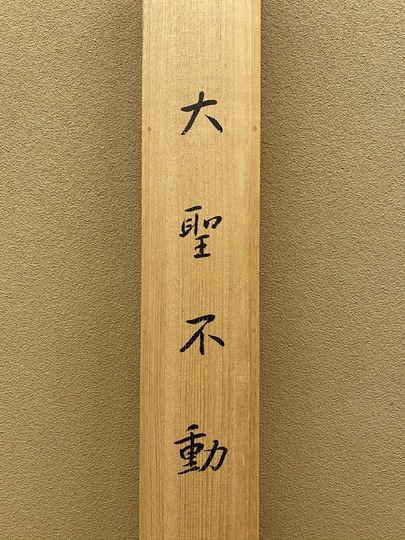 大聖不動